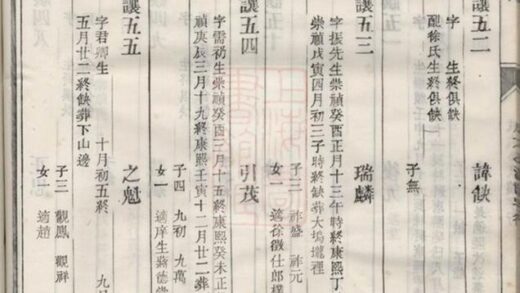 讓五二 諱缺
字 生終俱缺
配徐氏生終俱缺
子無
讓五三 瑞麟
字振先生崇禎癸酉正月十三午時終康熙丁
崇禎戊寅四月初三子時終缺葬大塢壠裡
子二 祚盛 祚元
女一 適徐徵仕郎樸
讓五四 引茂
字需初生崇禎癸酉三月十五終康熙癸未正
禎庚辰三月十九終康熙壬寅十二月廿二葬
子四 九初 九萬
女一 適庠生蔣德
讓五五 之魁
字君卿生 十月初五終
五月廿二終缺葬下山邊
子三 觀鳳 觀祥
女一 適趙